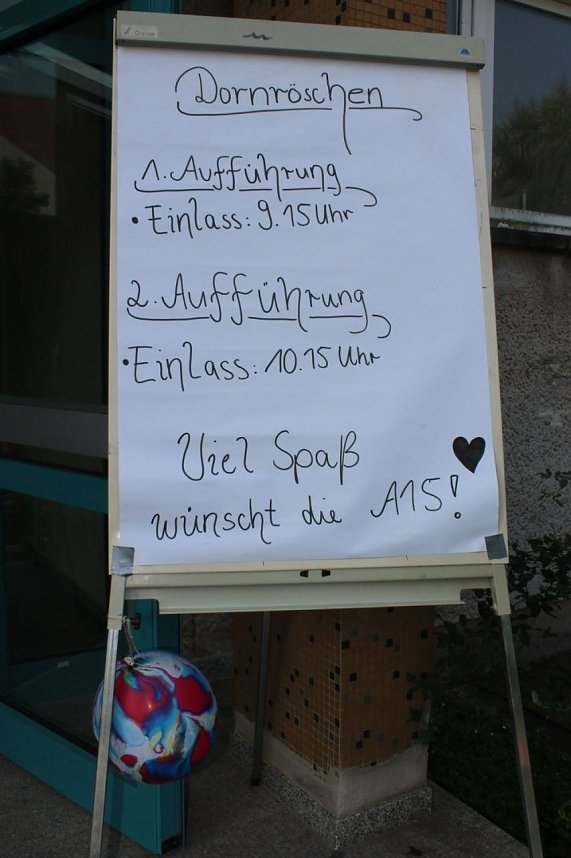 Dornröschen
1. Aufführung
• Einlass: 9.15 Uhr
2. Aufführung
• Einlass: 10.15 Uhr
Viel Spaß
wünscht die A15!